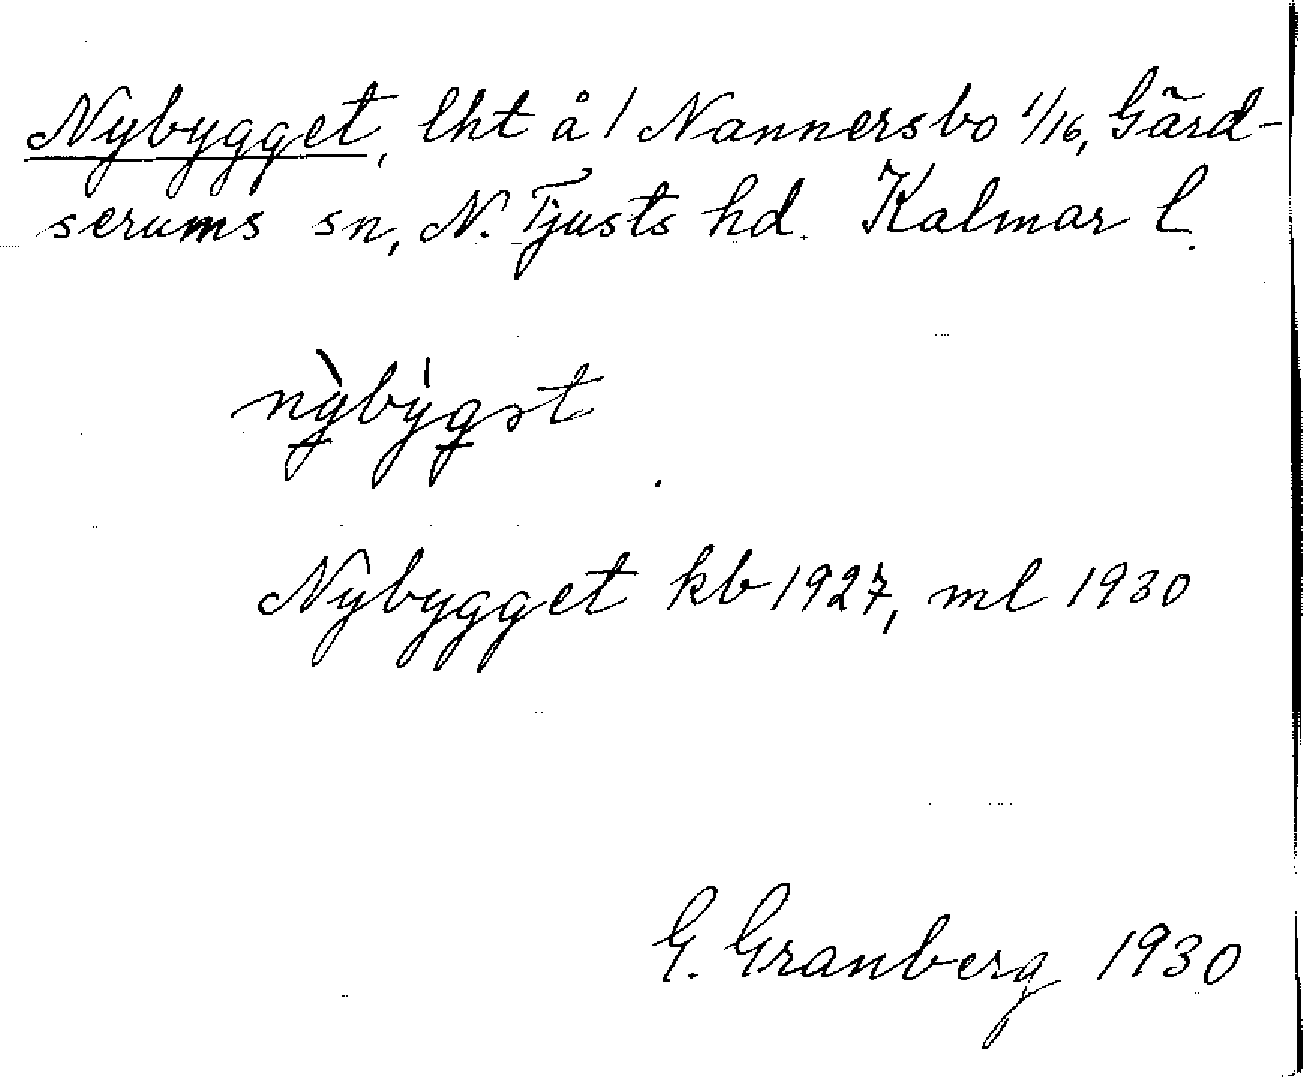 Nybygget, lht å 1 Nannersbo 1/16, Gärd-
serums sn, N. Tjusts hd. Kalmar l.
nỳbýgət
Nybygget kb 1927, ml 1930
G. Granberg 1930